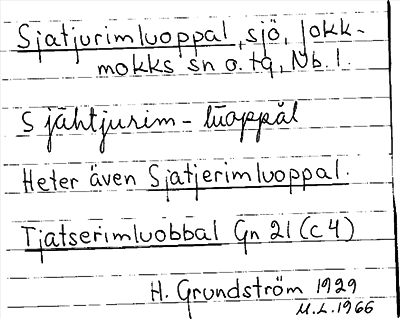 Sjatjurimluoppal, sjö, Jokk-
mokks sn o. tg, Nb. l.
Sjāhtjurim-lūoppål
Heter även Sjatjerimluoppal.
Tjatserimluobbal Gn 21 (c4)
H. Grundström 1929
M.L. 1966